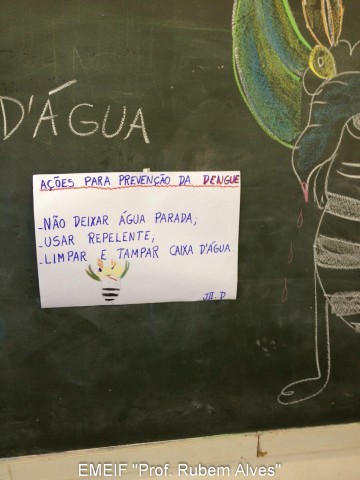 D'ÁGUA
AÇÕES PARA PREVENÇÃO DA DENGUE
-NÃO DEIXAR ÁGUA PARADA;
-USAR REPELENTE;
-LIMPAR E TAMPAR CAIXA D'ÁGUA.
JII-D
EMEIF "Prof. Rubem Alves"